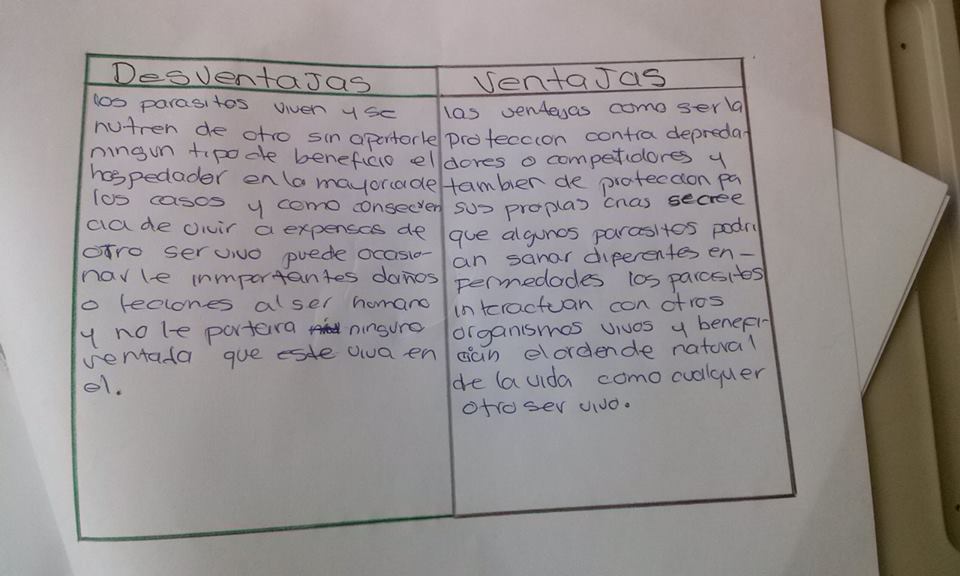 Desventajas
los parasitos viven y se
nutren de otro sin aportarle
ningun tipo de beneficio el
hospedador en la mayoria de
los casos y como consecuen
cia de vivir a expensas de
otro ser vivo puede ocasio-
narle inmportantes daños
o leciones al ser humano
y no le portara ninguna
ventada que este viva en
el.
Ventajas
las ventejas como ser la
proteccion contra depreda-
dores o competidores y
tambien de proteccion pa
sus propias crias se cree
que algunos parasitos podri
an sanar diferentes en-
permedades los parasitos
interactuan con otros
organismos vivos y benefi-
cian el orden de natural
de la vida como cualquer
otro ser vivo.